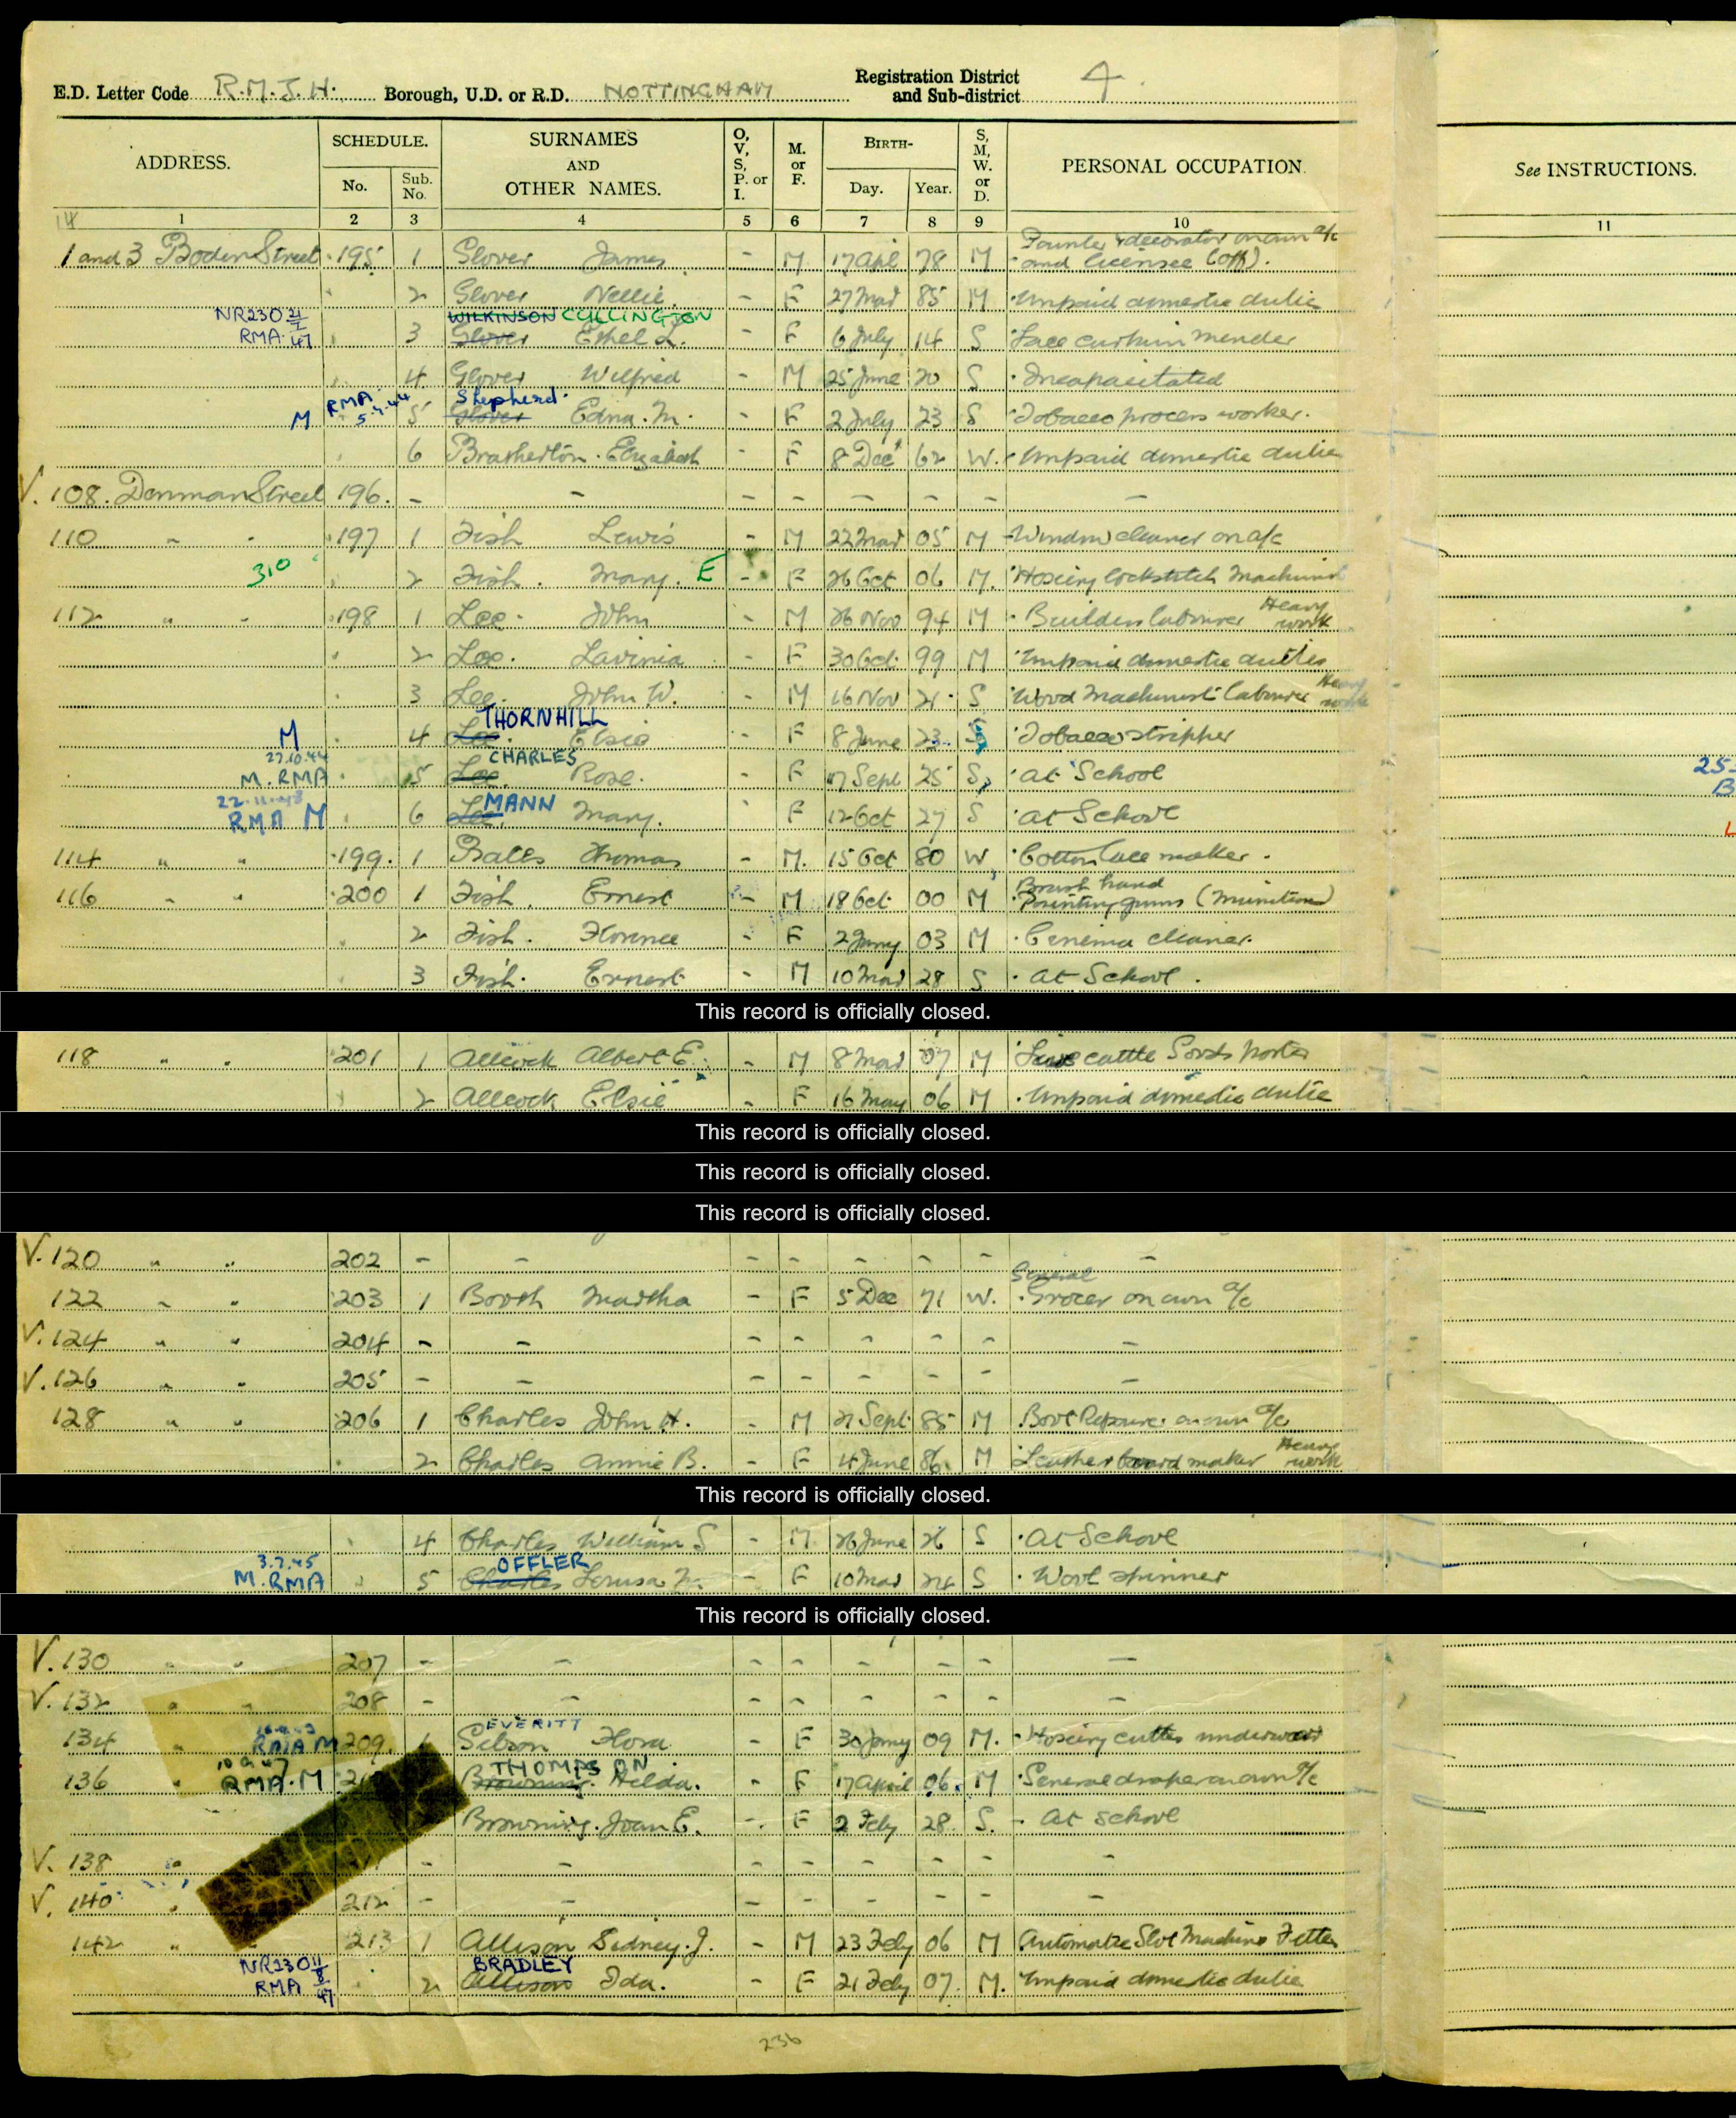 E.D. Letter Code R.M.J.H. Borough, U.D. or R.D. NOTTINGHAM Registration District and Sub-district 4
ADDRESS. SCHEDULE. No. Sub. No. SURNAMES AND OTHER NAMES. O, V, S, P. or I. M. or F. BIRTH- Day. Year. S, M, W. or D. PERSONAL OCCUPATION. See INSTRUCTIONS.
14 1 2 3 4 5 6 7 8 9 10 11
1 and 3 Boden Street 195 1 Glover James - M 17 Apl 78 M Painter & decorator on own a/c and licensee (off).
2 Glover Nellie - F 27 Mar 85 M Unpaid domestic dutie
NR230 21/1/47 RMA 3 WILKINSON CULLINGTON Glover Ethel L. - F 6 July 14 S Lace curtain mender
4 Glover Wilfred - M 25 June 20 S Incapacitated
M RMA 5.4.44 5 Shepherd Glover Edna. M. - F 2 July 23 S Tobacco process worker.
6 Bratherton. Elizabeth - F 8 Dec 62 W. Unpaid domestic dutie
V. 108. Denman Street 196. - - - - - - - -
110 " " 197 1 Fish Lewis - M 22 Mar 05 M Window cleaner on a/c
310 2 Fish. Mary. E - F 26 Oct 06 M. Hosiery lockstitch Machinist
112 " " 198 1 Lee. John - M 26 Nov 94 M Builders labourer Heavy work
2 Lee. Lavinia - F 30 Oct. 99 M Unpaid domestic duties
3 Lee. John W. - M 16 Nov 21 S Wood Machinist labourer Heavy work
M 4 THORNHILL Lee. Elsie - F 8 June 23 S Tobacco stripper
27.10.44 M. RMA 5 CHARLES Lee Rose. - F 17 Sept 25 S at School 25-
22.11.48 RMA M 6 MANN Lee. Mary. F 12 Oct 27 S at School
114 " " 199. 1 Bates Thomas - M. 15 Oct 80 W Cotton lace maker.
116 " " 200 1 Fish. Ernest - M 18 Oct 00 M Brush hand Painting guns (munitions)
2 Fish. Florence - F 2 Jany 03 M Cenema cleaner.
3 Fish. Ernest - M 10 Mar 28 S at School.
This record is officially closed.
118 " " 201 1 Allcock Albert E. - M 8 Mar 07 M Live cattle Goods Porter
2 Allcock Elsie - F 16 May 06 M Unpaid domestic dutie
This record is officially closed.
This record is officially closed.
This record is officially closed.
V. 120 " " 202 - - - - - - - -
122 " " 203 1 Booth Martha - F 5 Dec 71 W. General Grocer on own a/c
V. 124 " " 204 - - - - - - - -
V. 126 " " 205 - - - - - - - -
128 " " 206 1 Charles John H. - M 21 Sept 85 M Boot Repairer on own a/c
2 Charles Annie B. - F 4 June 86. M Leather board maker Heavy work
This record is officially closed.
4 Charles William S - M 26 June 26 S At School
3.7.45 M. RMA 5 OFFLER Charles Lousa M. - F 10 Mar 24 S Wool spinner
This record is officially closed.
V. 130 " " 207 - - - - - - - -
V. 132 " " 208 - - - - - - - -
134 " RMA M 209. 1 EVERITT Sibson Flora - F 30 Jany 09 M. Hosiery cutter underwear
136 " RMA. M THOMPSON Browning. Hilda. - F 17 April 06. M General draper on own a/c
Browning. Joan E. - F 2 Feby 28 S. At School
V. 138 " - - - - - - - -
V. 140 " 212 - - - - - - - -
142 " " 213 1 Allison Sidney. J. - M 23 Feby 06 M Automatic Slot Machine Fitter
NR230 11/8/47 RMA 2 BRADLEY Allison Ida. - F 21 Feby 07 M. Unpaid domestic dutie
236